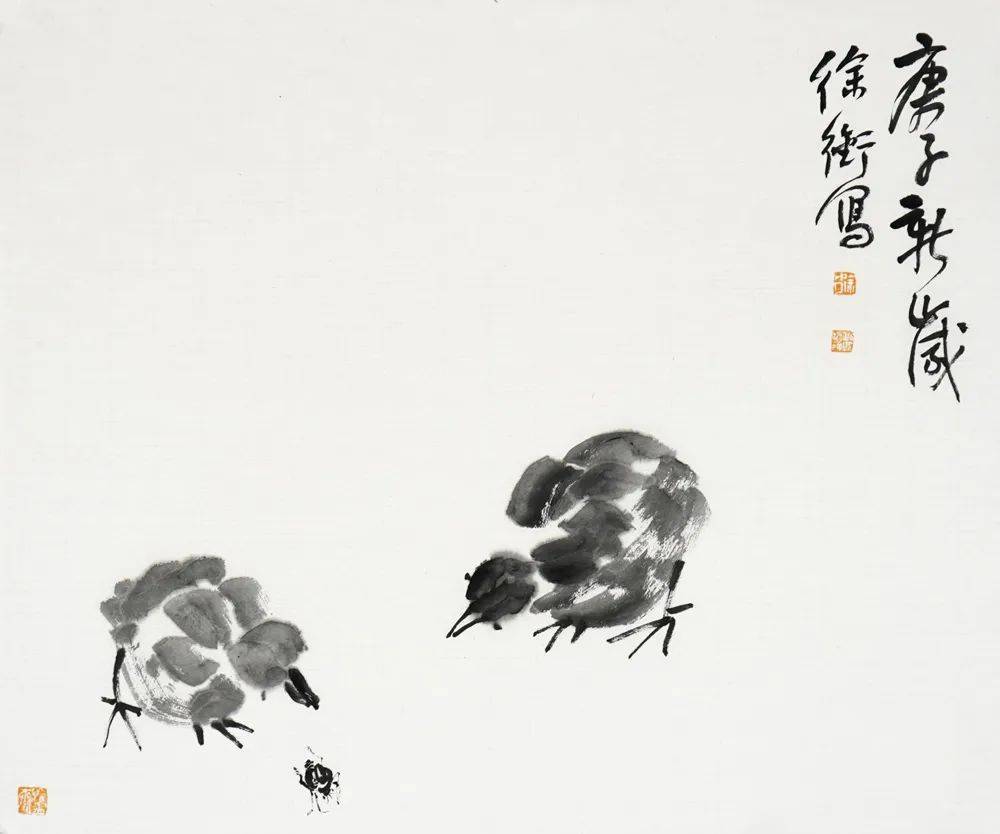 庚子新歲
徐衡寫